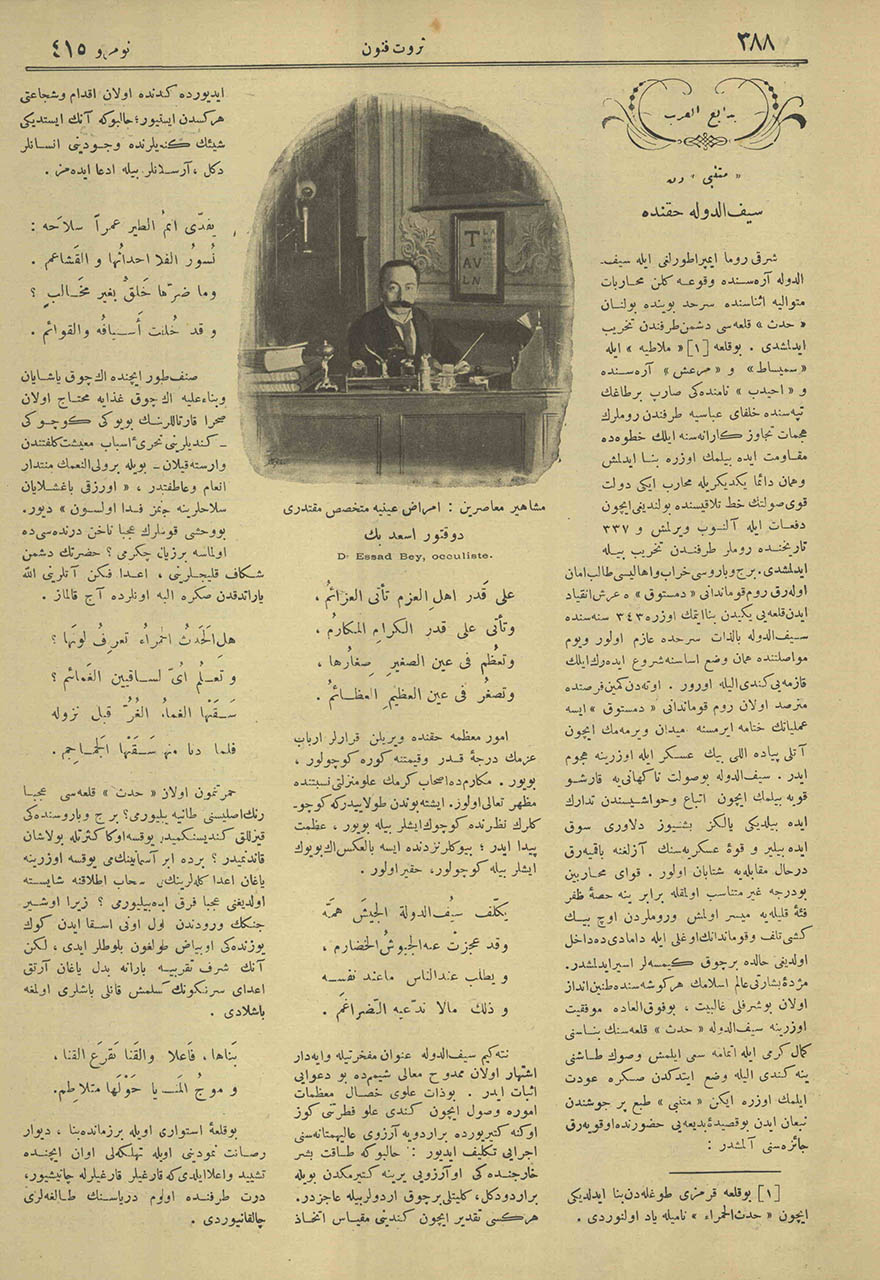 ٣٨٨
ثروت فنون
نومرو ٤١٥
بدایع العرب
« متنبی » دن
سیف الدوله حقنده
شرقی روما ایمپراطورلغی ایله سیف‌
الدوله آره‌سنده وقوعه کلن محاربات
متوالیه اثناسنده سرحد بوینده بولنان
« حدث » قلعه‌سی دشمن طرفندن تخریب
ایدلمشدی . بوقلعه [١] « ملاطیه » ایله
« سمیساط » و « مرعش » آره‌سنده
و « احیدب » نامنده‌کی صارپ برطاغك
تپه‌سنده خلفای عباسیه طرفندن روملرك
هجمات تجاوز کارانه‌سنه ایلك خطوه‌ده
مقاومت ایده بیلمك اوزره بنا ایدلمش
وهمان دائما یکدیکریله محارب ایکی دولت
قوی صولتك خط تلاقیسنده بولندیغی ایچون
دفعات ایله آلنوب ویرلمش و ٣٣٧
تاریخنده روملر طرفندن تخریب بیله
ایدلمشدی. برج وباروسی خراب واهالیسی طالب امان
اوله‌رق روم قوماندانی « دمستوق » ه عرض انقیاد
ایدن قلعه‌یی یکیدن بنا ایتمك اوزره ٣٤٣ سنه سنده
سیف الدوله بالذات سرحده عازم اولور ویوم
مواصلتنده همان وضع اساسنه شروع ایده‌رك ایلك
قازمه‌یی کندی الیله اورور . اوته‌دن کمین فرصتده
مترصد اولان روم قوماندانی « دمستوق » ایسه
عملیاتك ختامه ایرمسنه میدان ویرمه‌مك ایچون
آتلی پیاده اللی بیك عسکر ایله اوزرینه هجوم
ایدر . سیف الدوله بوصولت ناکهانی‌یه قارشو
قویه بیلمك ایچون اتباع وحواشیسندن تدارك
ایده بیلدیکی یالکز بشیوز دلاوری سوق
ایده بیلیر و قوهٔ عسکریه‌سنك آزلغنه باقمیه‌رق
درحال مقابله‌یه شتابان اولور . قوای محاربین
بودرجه غیر متناسب اولمقله برابر ینه حصهٔ ظفر
فئهٔ قلیله‌یه میسر اولمش وروملردن اوچ بیك
کشی تلف وقوماندانك اوغلی ایله دامادی‌ده داخل
اولدیغی حالده برچوق کیمسه‌لر اسیر ایدلمشدر.
مژدهٔ بشارتی عالم اسلامك هرکوشه‌سنده طنین‌انداز
اولان بوشرفلی غالبیت ، بوفوق‌العاده موفقیت
اوزرینه سیف الدوله « حدث » قلعه‌سنك بناسنی
کمال کرمی ایله اتمامه سعی ایلمش وصوك طاشنی
ینه کندی الیله وضع ایتدکدن صکره عودت
ایلمك اوزره ایکن « متنبی » طبع پر جوشندن
نبعان ایدن بوقصیدهٔ بدیعه‌یی حضورنده اوقویه‌رق
جائزه‌سنی آلمشدر :
[١] بوقلعه قرمزی طوغله‌دن بنا ایدلدیکی
ایچون « حدث الحمراء » نامیله یاد اولنوردی .
مشاهیر معاصرین : امراض عینیه متخصص مقتدری
دوقتور اسعد بك
Dr Essad Bey, occuliste.
علی قَدر اهل العزم تأتی العزائمُ ،
وتأتی علی قدر الکرامِ المکارمُ ،
وتعظُم فی عین الصغیرِ صِغارُها ،
وتصغُر فی عین العظیمِ العظائمُ .
امور معظمه حقنده ویریلن قرارلر ارباب
عزمك درجهٔ قدر وقیمتنه کوره کوچولور ،
بویور . مکارم‌ده اصحاب کرمك علو منزلتی نسبتنده
مظهر تعالی اولور. ایشته بوندن طولاییدرکه کوچو‌
کلرك نظرنده کوچوك ایشلر بیله بویور ، عظمت
پیدا ایدر ؛ بیوکلر نزدنده ایسه بالعکس اك بویوك
ایشلر بیله کوچولور، حقیر اولور .
یکلّف سیفُ الدولة الجیشَ همَّه
وقد عجزتْ عنه الجیوشُ الخضارم ،
و یطلب عند الناس ماعند نفسه
و ذلك مالا تدّعیه الضراغمُ .
نته‌کیم سیف‌الدوله عنوان مفخرتیله وایه‌دار
اشتهار اولان ممدوح معالی شیمم‌ده بو دعوایی
اثبات ایدر . بوذات علوی خصال معظمات
اموره وصول ایچون کندی علو فطرتی کوز
اوکنه کتیریورده براردویه آرزوی عالیهمتانه‌سنی
اجرایی تکلیف ایدیور : حالبوکه طاقت بشر
خارجنده‌کی اوآرزویی یرینه کتیرمکدن بویله
براردودکل، کلیتلی برچوق اردولر بیله عاجزدر.
هرکسی تقدیر ایچون کندینی مقیاس اتخاذ
ایدیورده کندنده اولان اقدام وشجاعتی
هرکسدن ایستیور؛ حالبوکه آنك ایستدیکی
شیئك کندیلرنده وجودینی انسانلر
دکل ، آرسلانلر بیله ادعا ایده‌مز .
یفدّی اتمُ الطیر عمراً سلاحَه :
نُسورُ الفلا احداثُها و القَشاعم .
وما ضرّها خَلقٌ بغیر مخالبٍ ؟
و قد خُلقت أسیافُه والقوائم .
صنف طیور ایچنده اك چوق یاشایان
وبناءعلیه اك چوق غذایه محتاج اولان
صحرا قارتاللرینك بویوکی کوچوکی
ـ کندیلرینی تحرئ اسباب معیشت کلفتندن
وارسته قیلان ـ بویله برولی‌النعمك منتدار
انعام وعاطفتدر ، « اورزقی باغشلایان
سلاحلرینه جانمز فدا اولسون » دیور.
بووحشی قوشلرك عجبا ناخن درنده‌سی‌ده
اولماسه برزیان چکرمی ؟ حضرتك دشمن
شکاف قلیجلرینی ، اعدا فکن آتلرینی الله
یاراتدقدن صکره البه اونلرده آج قالماز .
هل الحَدثُ الحمراءُ تعرفُ لونَها ؟
و تعلمُ أیّ الساقیین الغَمائم ؟
سَقتْها الغمامُ الغُرُّ قبل نزوله
فلما دنا منها سَقَتْها الجَماجم.
حمرتمون اولان « حدث » قلعه‌سی عجبا
رنك اصلیسنی طانیه بیلیورمی؟ برج وباروسنده‌کی
قیزللق کندیسنکمیدر یوقسه اوکا کثرتله بولاشان
قاندنمیدر ؟ برده ابر آسمانینك‌می یوقسه اوزرینه
یاغان اعدا کله‌لرینك‌می سحاب اطلاقنه شایسته
اولدیغنی عجبا فرق ایده‌بیلیورمی ؟ زیرا اوشیر
جنکك ورودندن اول اونی اسقا ایدن کوك
یوزنده‌کی اوبیاض طولغون بلوطلر ایدی ، لکن
آنك شرف تقربیله بارانه بدل یاغان آرتق
اعدای سرنکونك کسلمش قانلی باشلری اولمغه
باشلادی .
بَناها، فأعلا والقنا تقرَع القنا ،
و موجُ المنـایا حَولَها متلاطِم.
بوقلعهٔ استواری اویله برزمانده بنا ، دیوار
رصانت نمودینی اویله تهلکه‌لی اوان ایچنده
تشیید واعلا ایلدی که قارغیلر قارغیلرله چاتیشیور،
درت طرفنده اولوم دریاسنك طالغه‌لری
چالقانیوردی .